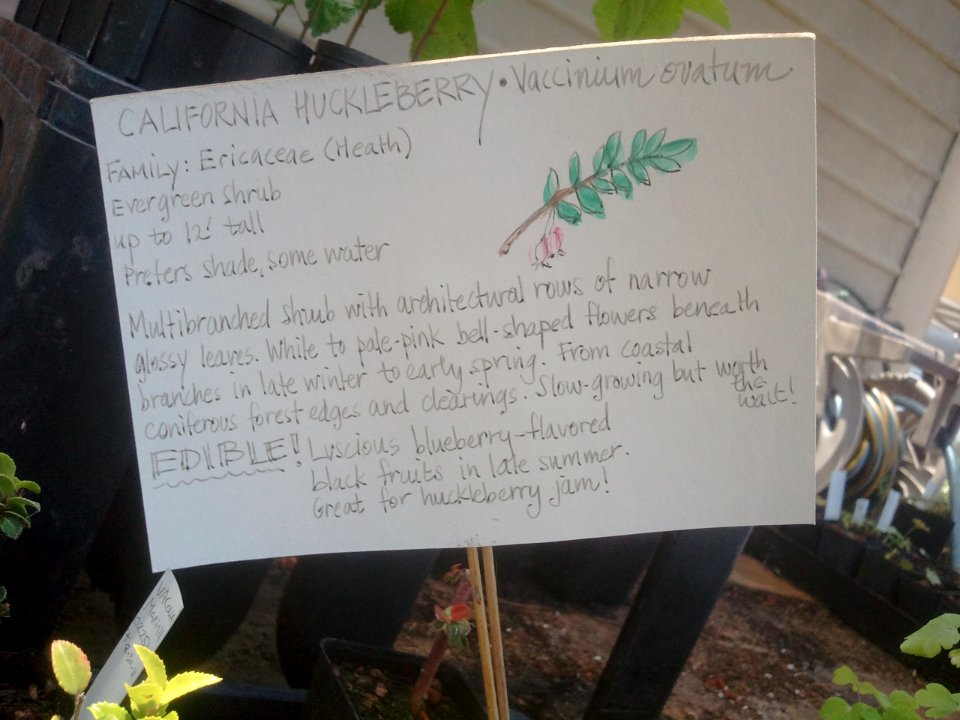 CALIFORNIA HUCKLEBERRY • Vaccinium ovatum
FAMILY: Ericaceae (Heath)
Evergreen shrub
up to 12' tall
Prefers shade, some water
Multibranched shrub with architectural rows of narrow
glossy leaves. White to pale-pink bell-shaped flowers beneath
branches in late winter to early spring. From coastal
coniferous forest edges and clearings. Slow-growing but worth
the
wait!
EDIBLE! Luscious blueberry-flavored
black fruits in late summer.
Great for huckleberry jam!